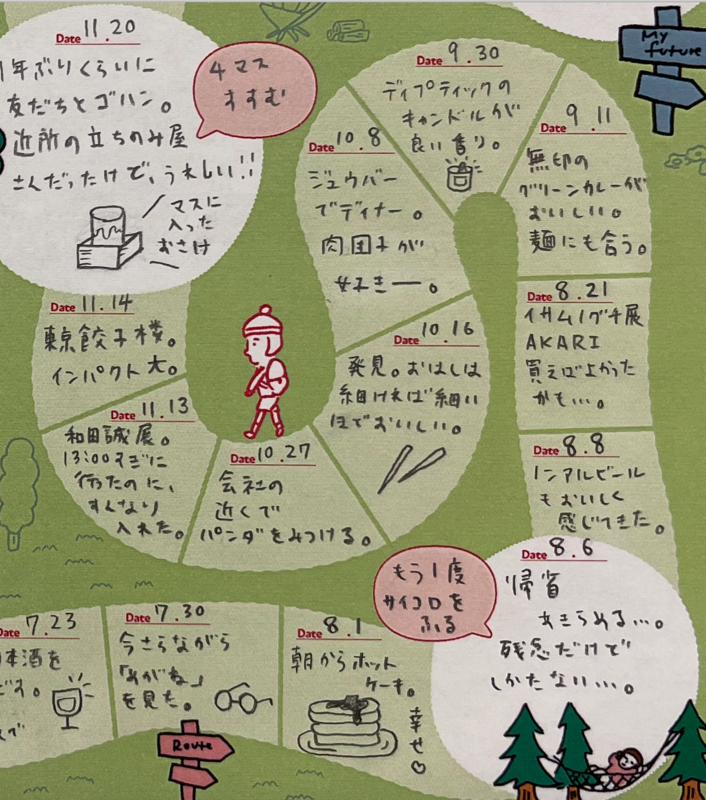 Date 11.20
1年ぶりくらいに
友だちとゴハン。
近所の立ちのみ屋
さんだったけど、うれしい!!
マスに
入った
おさけ
4マス
すすむ
Date 9.30
ディプティックの
キャンドルが
良い香り。
My
future
Date 10.8
ジュウバー
でディナー。
肉団子が
好きー。
Date 9.11
無印の
グリーンカレーが
おいしい。
麺にも合う。
Date 11.14
東京餃子楼。
インパクト大。
Date 10.16
発見。おはしは
細ければ細い
ほどおいしい。
Date 8.21
イサムノグチ展
AKARI
買えばよかった
かも…。
Date 11.13
和田誠展。
13:00すぎに
行ったのに、
すんなり
入れた。
Date 10.27
会社の
近くで
パンダをみつける。
Date 8.8
ノンアルビール
もおいしく
感じてきた。
もう1度
サイコロを
ふる
Date 8.6
帰省
あきらめる…。
残念だけど
しかたない…。
Date 7.23
本酒を
Date 7.30
今さらながら
「めがね」
を見た。
Date 8.1
朝からホット
ケーキ。
幸せ♡
Route